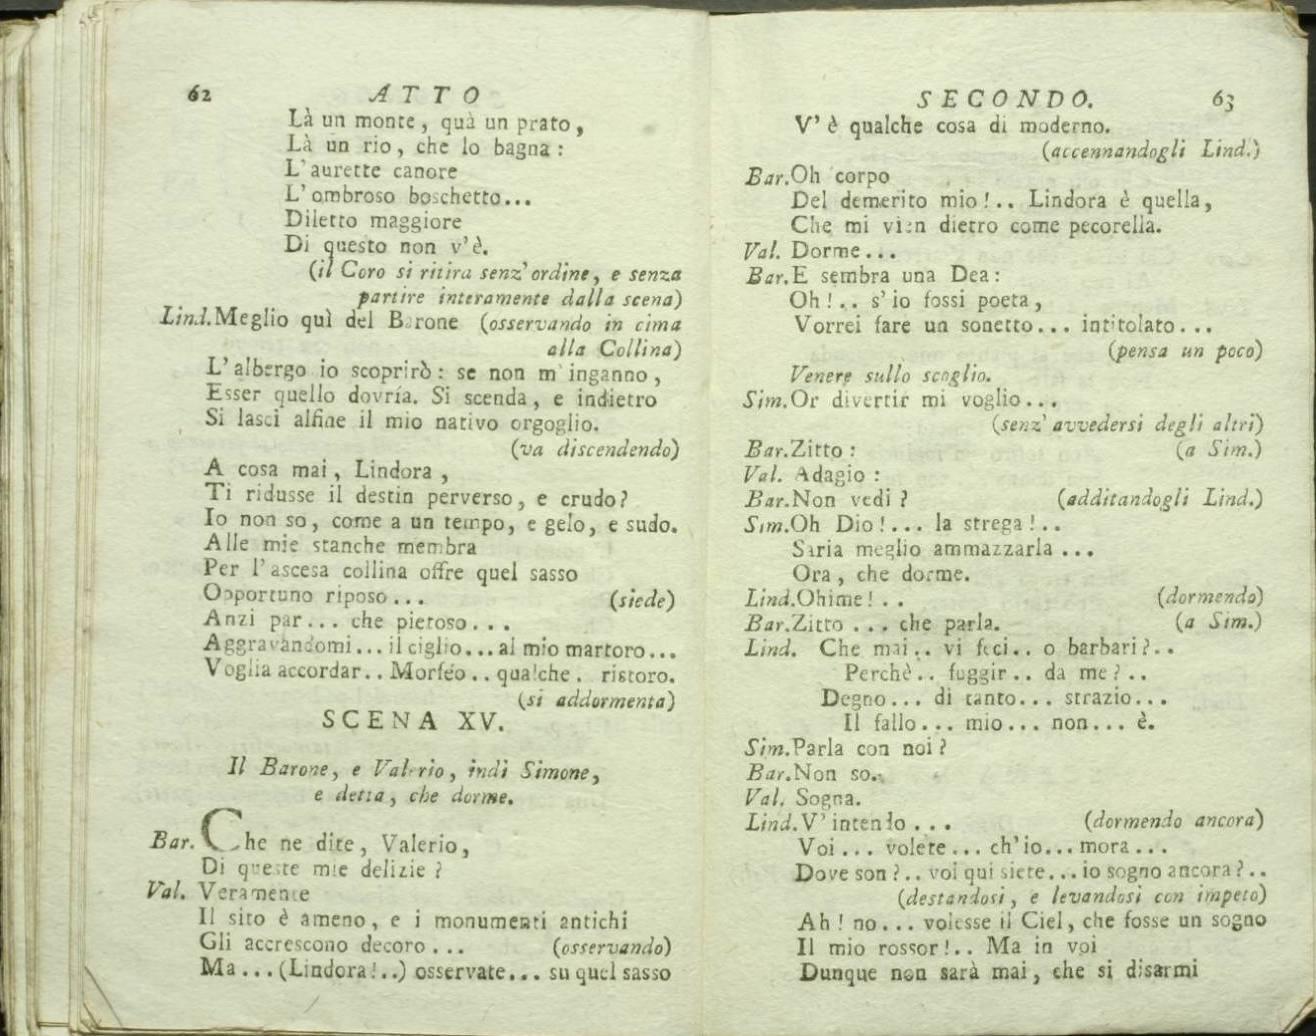 62 ATTO
Là un monte, quà un prato,
Là un rio, che lo bagna:
L'aurette canore
L'ombroso boschetto...
Diletto maggiore
Di questo non v'è.
(il Coro si ritira senz'ordine, e senza
partire interamente dalla scena)
Lind. Meglio quì del Barone (osservando in cima
alla Collina)
L'albergo io scoprirò: se non m'inganno,
Esser quello dovría. Si scenda, e indietro
Si lasci alfine il mio nativo orgoglio.
(va discendendo)
A cosa mai, Lindora,
Ti ridusse il destin perverso, e crudo?
Io non so, come a un tempo, e gelo, e sudo.
Alle mie stanche membra
Per l'ascesa collina offre quel sasso
Opportuno riposo... (siede)
Anzi par... che pietoso...
Aggravandomi... il ciglio... al mio martoro...
Voglia accordar.. Morféo.. qualche. ristoro.
(si addormenta)
SCENA XV.
Il Barone, e Valerio, indi Simone,
e detta, che dorme.
Bar. Che ne dite, Valerio,
Di queste mie delizie?
Val. Veramente
Il sito è ameno, e i monumenti antichi
Gli accrescono decoro... (osservando)
Ma... (Lindora!..) osservate... su quel sasso
SECONDO. 63
V'è qualche cosa di moderno.
(accennandogli Lind.)
Bar. Oh corpo
Del demerito mio!.. Lindora è quella,
Che mi vien dietro come pecorella.
Val. Dorme...
Bar. E sembra una Dea:
Oh!.. s'io fossi poeta,
Vorrei fare un sonetto... intitolato...
(pensa un poco)
Venere sullo scoglio.
Sim. Or divertir mi voglio...
(senz'avvedersi degli altri)
Bar. Zitto: (a Sim.)
Val. Adagio:
Bar. Non vedi? (additandogli Lind.)
Sim. Oh Dio!... la strega!..
Saria meglio ammazzarla...
Ora, che dorme.
Lind. Ohime!.. (dormendo)
Bar. Zitto... che parla. (a Sim.)
Lind. Che mai.. vi feci.. o barbari?..
Perchè.. fuggir.. da me?..
Degno... di tanto... strazio...
Il fallo... mio... non... è.
Sim. Parla con noi?
Bar. Non so.
Val. Sogna.
Lind. V'intendo... (dormendo ancora)
Voi... volete... ch'io... mora...
Dove son?.. voi qui siete... io sogno ancora?..
(destandosi, e levandosi con impeto)
Ah! no... volesse il Ciel, che fosse un sogno
Il mio rossor!.. Ma in voi
Dunque non sarà mai, che si disarmi